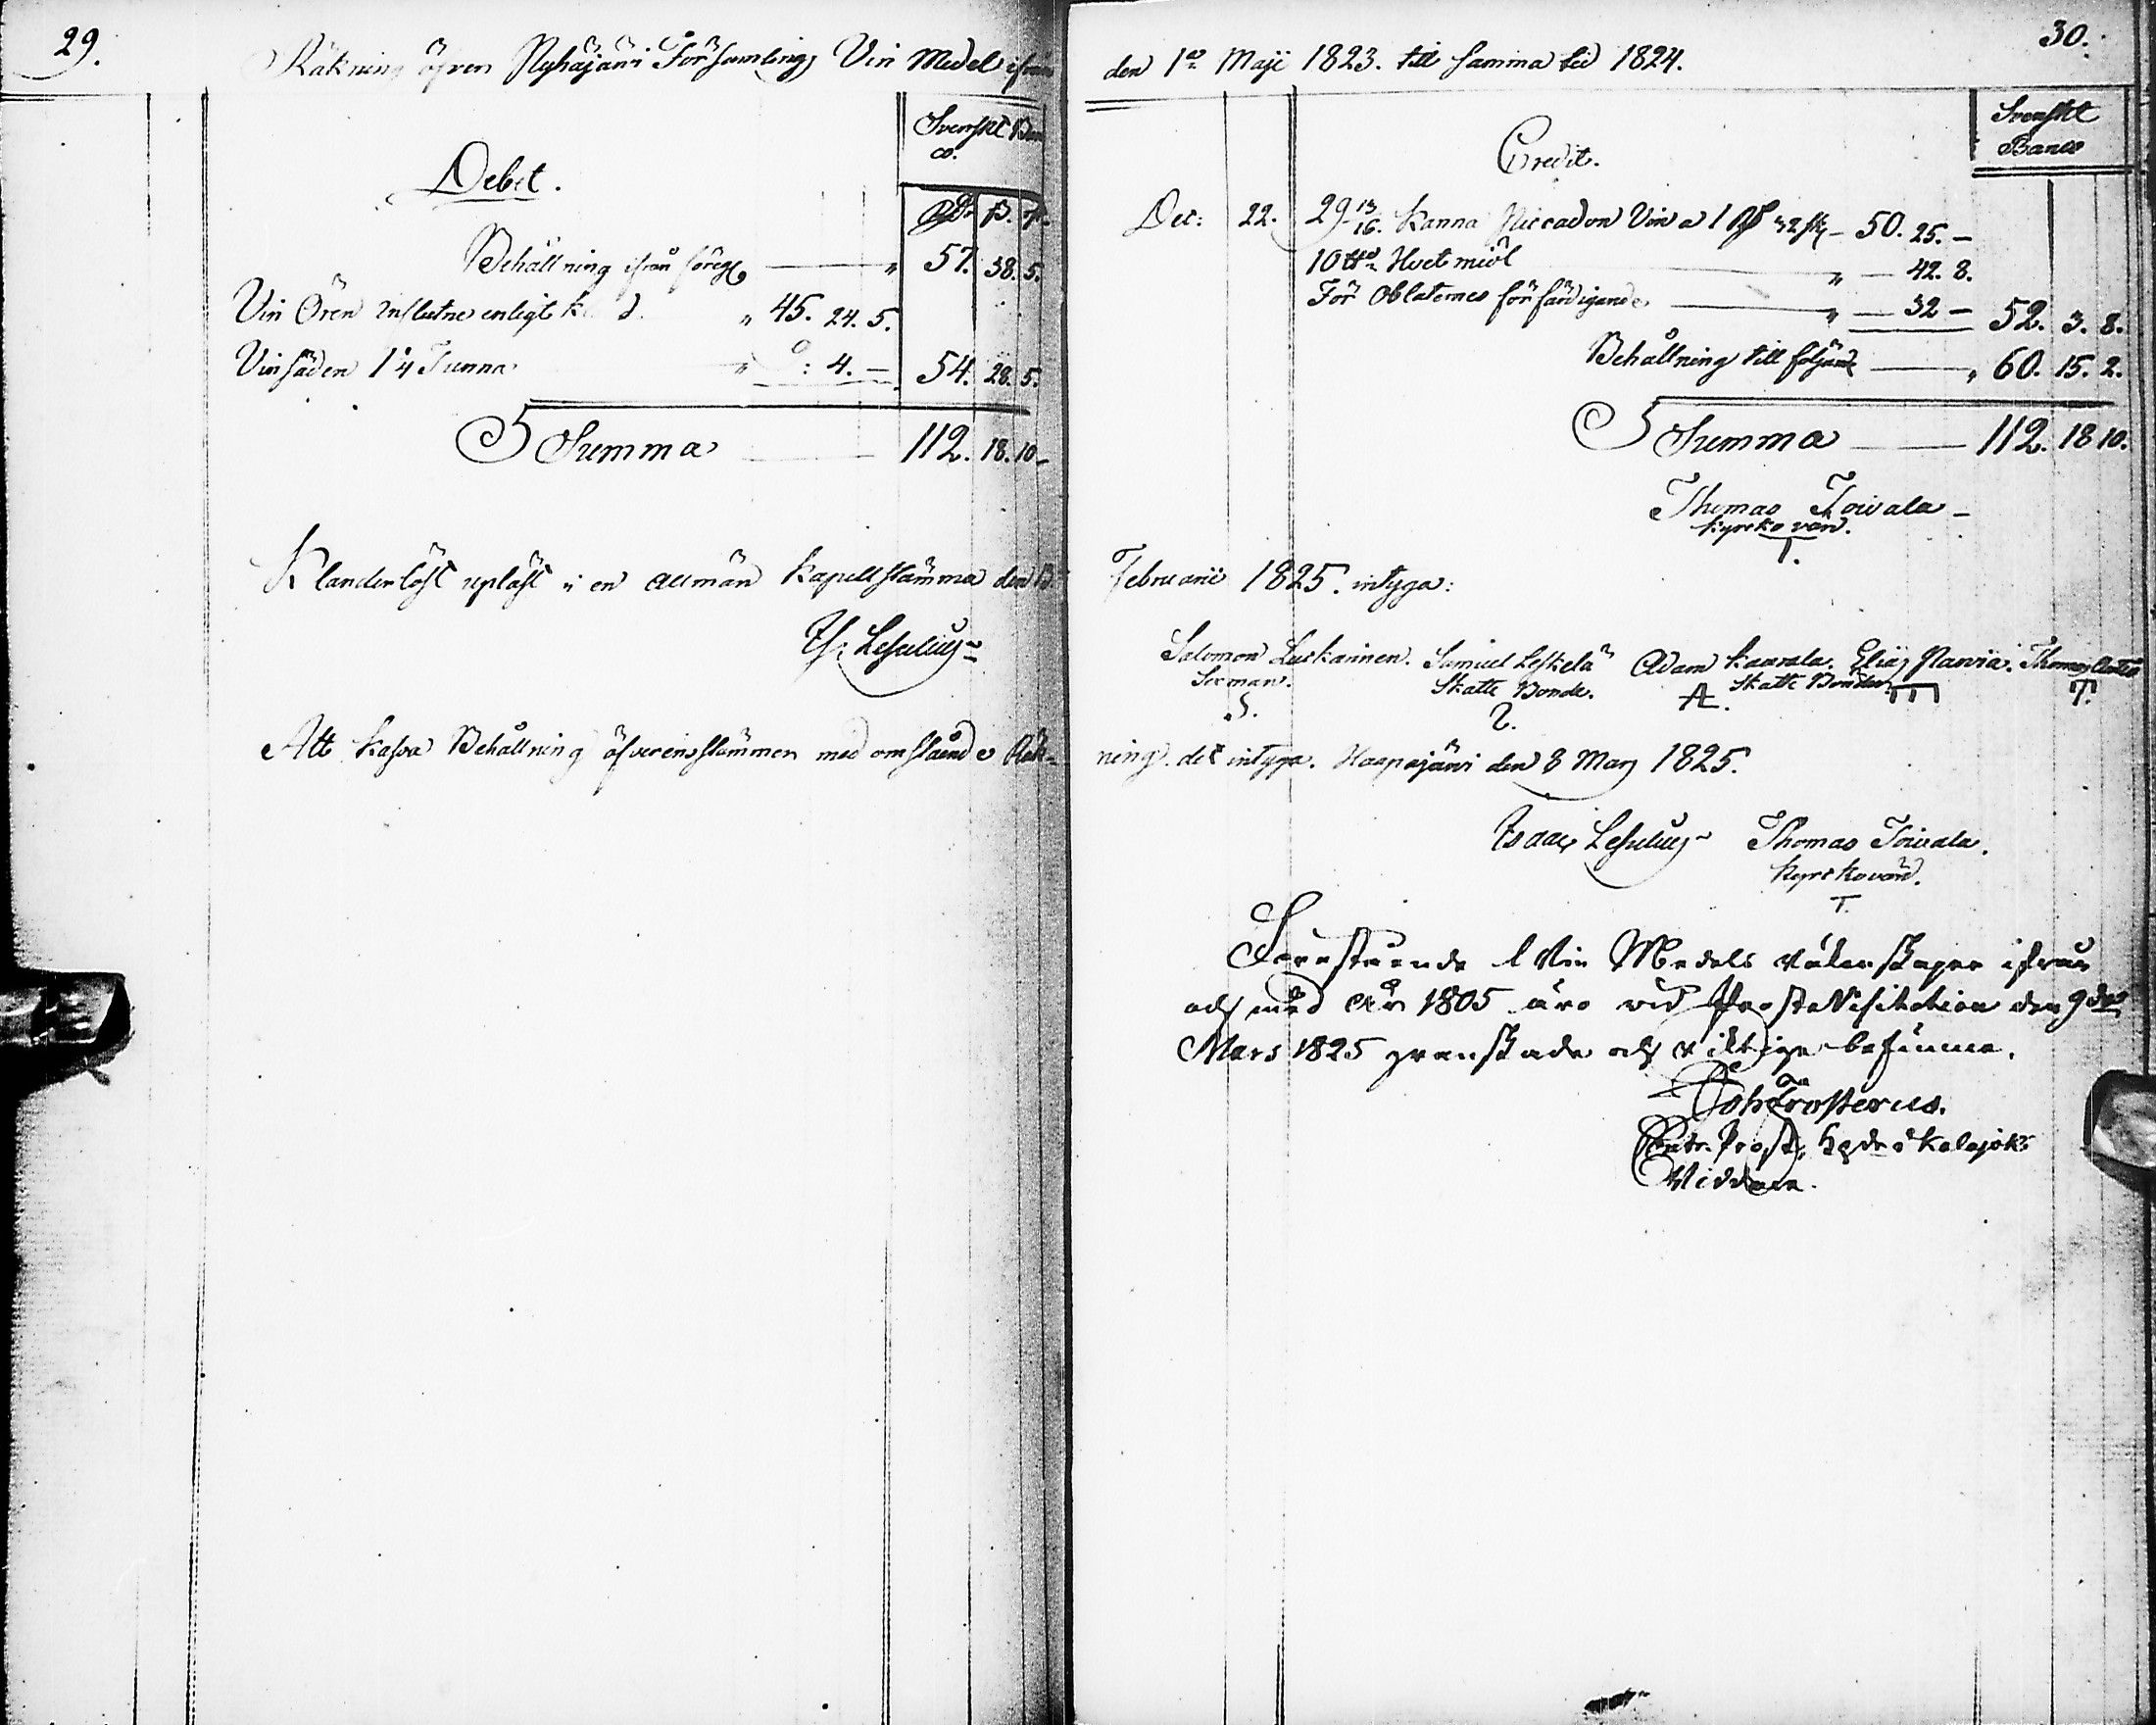 29.
Räkning öfver Pyhäjärvi Församlings Vin Medel ifrån
Svenskt Ban
co.
Debet.
Rd. ß. r.
Behållning ifrån föreg. — " 57. 38. 5.
Vin Ören influtne enligt " 45. 24. 5.
Vinsäden 1/4 Tunna " : 4. — 54. 28. 5.
Summa — 112. 18. 10 —
Klanderlöst upläst i en allmän Kapellstämma den
Is: Lesulius
Att Kassa Behållning öfverensstämmer med omstående Räk-
30.
den 1a Maji 1823. till samma tid 1824.
Svenskt
Banco
Credit.
Oct: 22. 29 13/16. Kanna Piccadon Vin a 1 Rd 32 sk — 50. 25. —
10 tt Hvetmiöl " — 42. 8.
För Oblaternes förfärdigande — " — 32 — 52. 3. 8.
Behållning till följande — " 60. 15. 2.
Summa — 112. 18 10.
Thomas Toivala —
Kyrkovärd.
T.
Februarii 1825. intyga:
Salomon Luskainen. Samuel Leskelä Adam Kaarala. Elias Parviai. Thomas
Sexman. Skatte Bonde. Skatte Bönder
S. A. T.
ning. det intyga. Haapajärvi den 8 Mars 1825.
Isaac Lesulius Thomas Toivala.
Kyrkovärd.
T.
Forestående Vin Medels räkenskaper ifrån
och med År 1805 äro vid Prosta Visitation den 9de
Mars 1825 granskade och riktige befunne.
Joh Frosterus.
Contr. Prost, Kalajoki